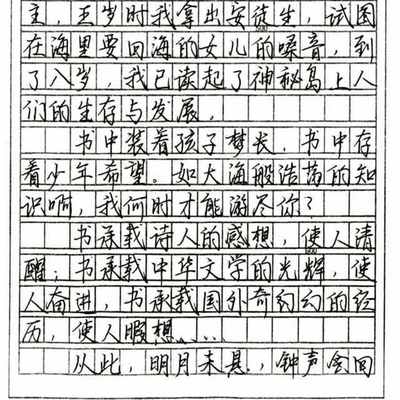 主，五岁时我拿出安徒生，试图
在海里要回海的女儿的嗓音，到
了八岁，我已读起了神秘岛上人
们的生存与发展。
书中装着孩子梦长，书中存
着少年希望。如大海般浩荡的知
识啊，我何时才能游尽你？
书承载诗人的感想，使人清
醒；书承载中华文学的光辉，使
人奋进，书承载国外奇幻幻的经
历，使人暇想……
从此，明月未悬，钟声会回
500
600